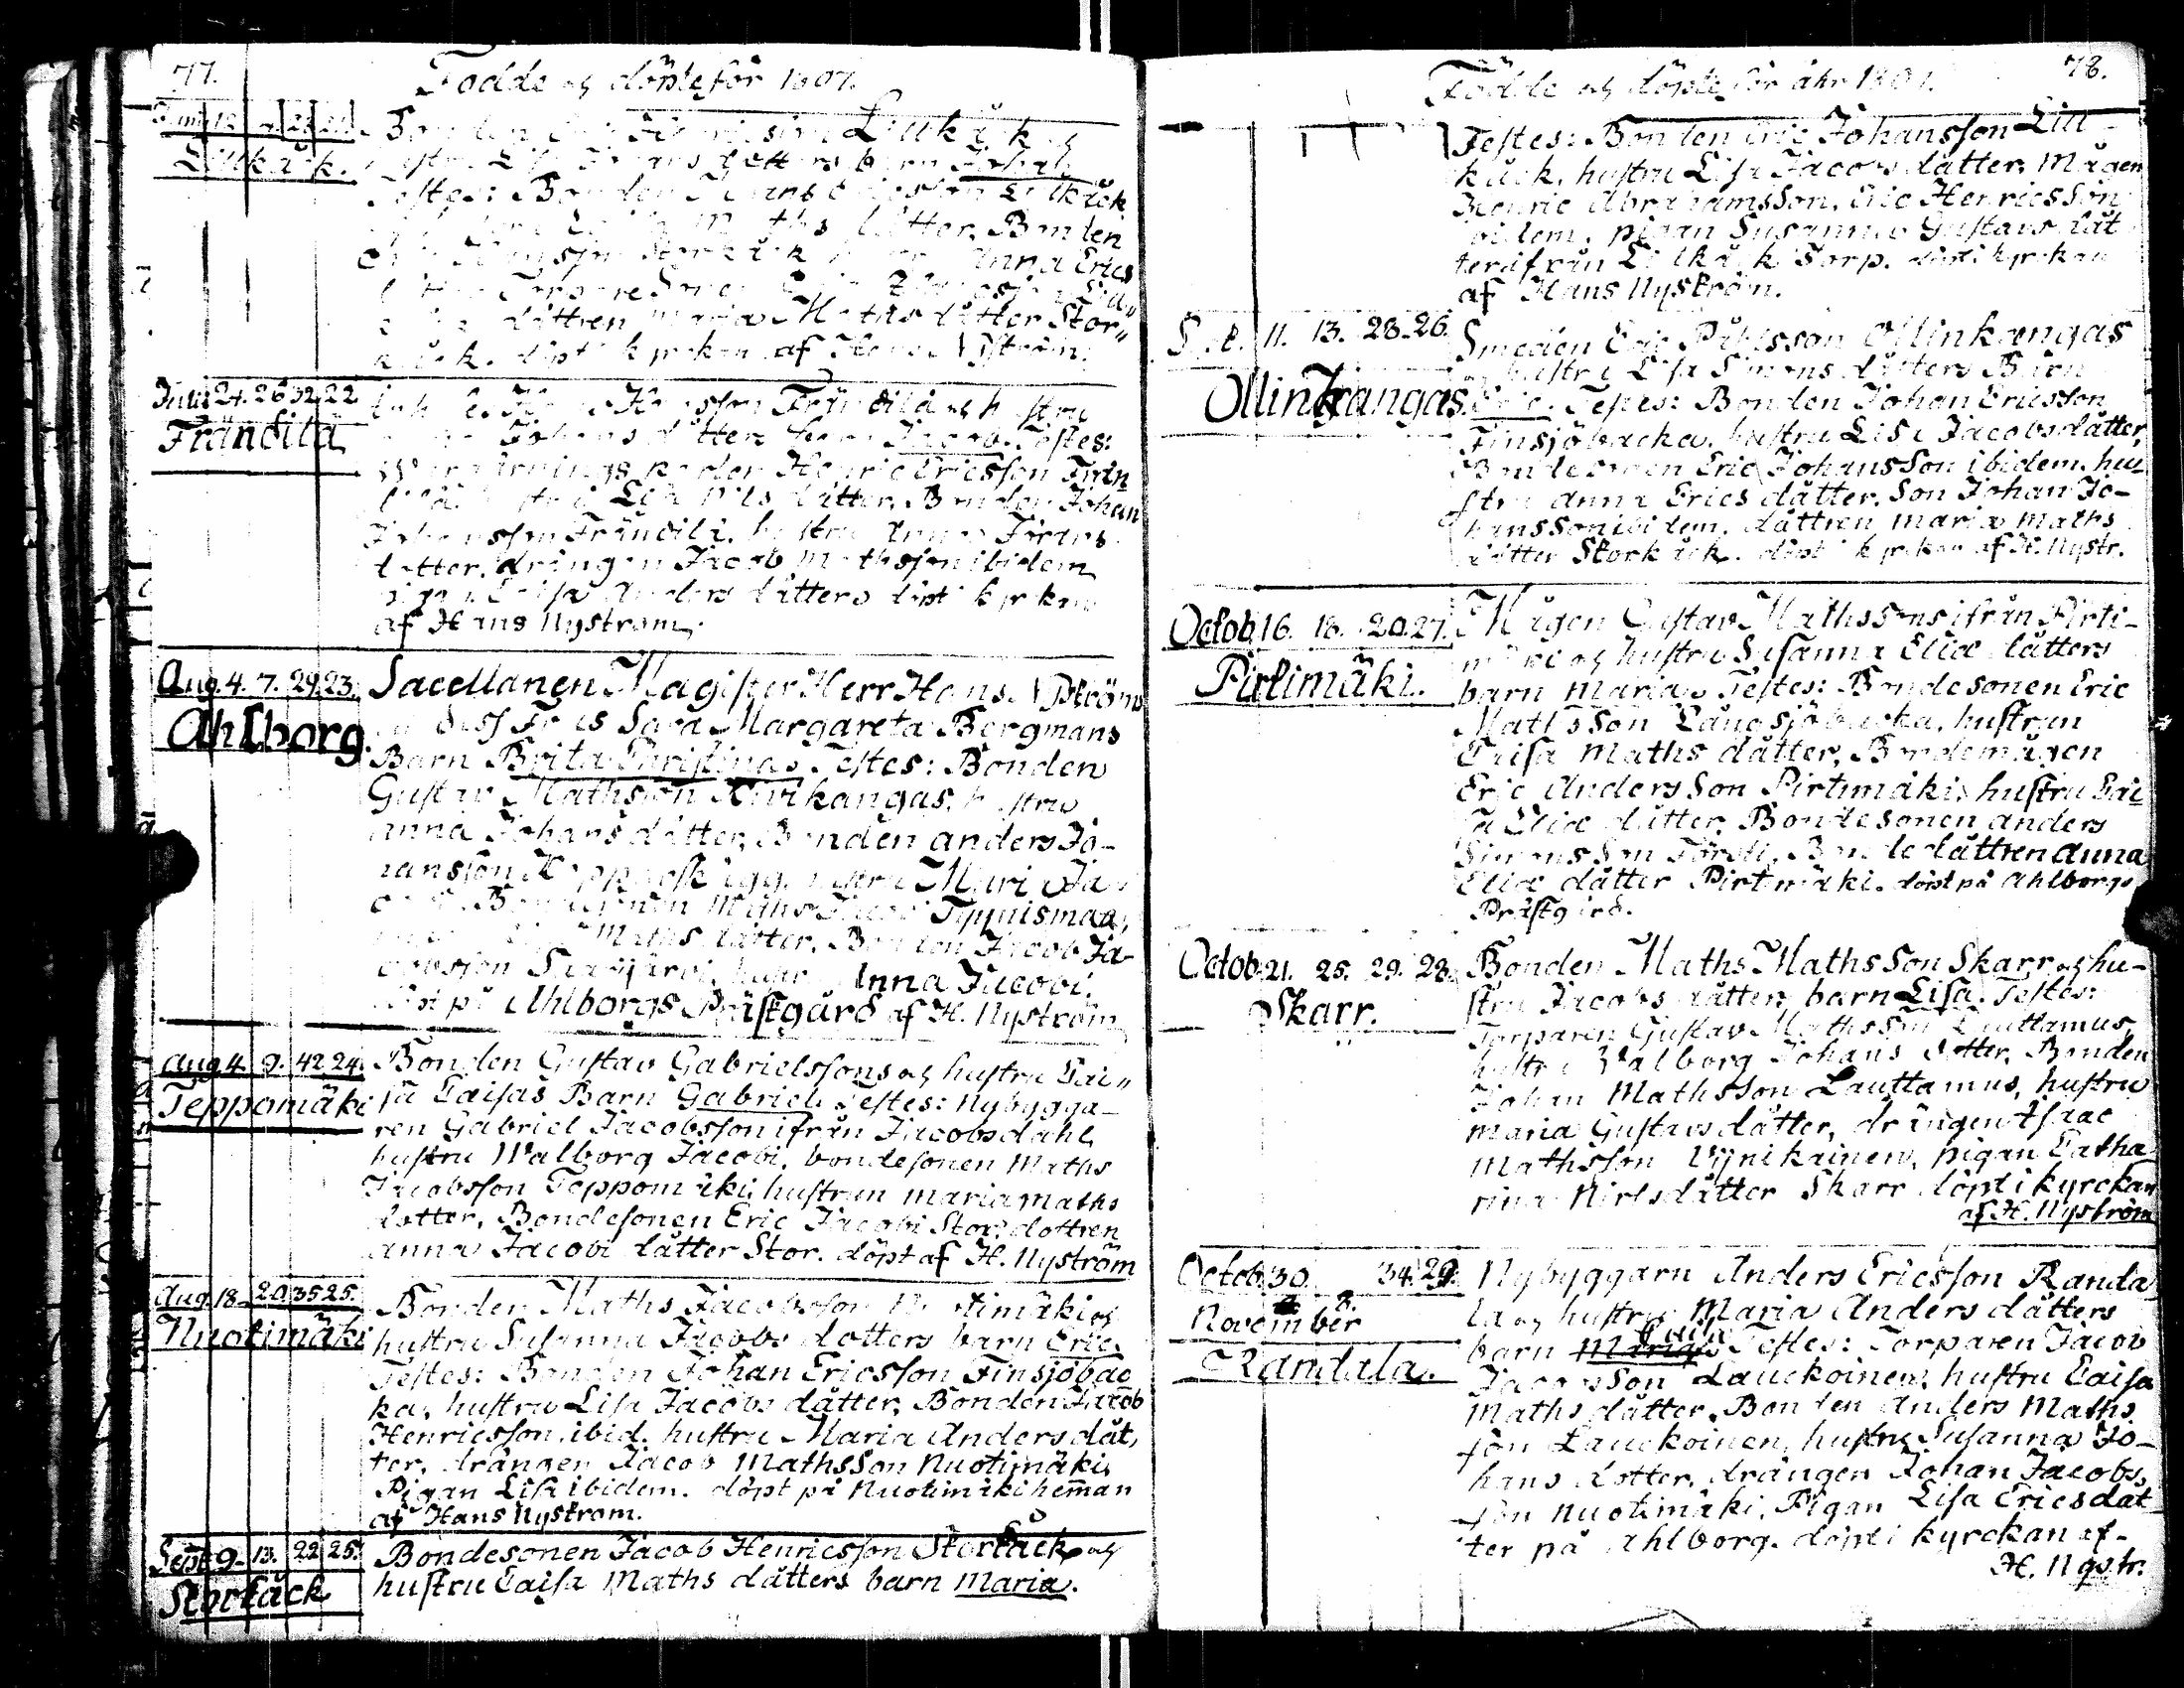 77.
Födde och döpte för 1807.
Lillkåck.
Lillkåck
Testes: Bonden Johans Ericsson Lillkåck
Maths dåtter, Bonden
Storkåck Anna Erics
dåttren Maria Maths dåtter Stor"
kåck. döpt i kyrckan af Hans Nyström.
Julii 24. 26 32 22
Frändilä
Frändilä och hustru
Johans dåtters barn Jacob. Testes:
Henric Ericsson Frän
Lisa Nils dåtter, Bonden Johan
Johansson Frändilä. hustru Anna Jörans
dotter. drängen Jacob Mathsson ibidem
pigan Caisa Anders dåtters döpt i kyrkan
af Hans Nyström.
Aug. 4. 7. 29. 23.
Ahlborg.
Sacellanen Magister Herr Hans Nyströms
och dess Frus Sara Margareta Bergmans
Barn Brita Christina. Testes: Bonden
Gustav Mathsson Kivikangas, hustru
Anna Johans dåtter, Bonden Anders Jo-
hansson hustru Maria Ja
Maths Tyynismaa,
Maths dåtter, Bonden Jacob Ja-
cobsson Saarijärvi, hustru Anna Jacobi.
döpt på Ahlborgs Prästgård af H. Nyström
Aug. 4. 9. 42. 24.
Teppomäki
Bonden Gustav Gabrielssons och hustru Cai"
sa Caisas Barn Gabriel. Testes: Nybygga-
ren Gabriel Jacobsson ifrån Jacobsdahl,
hustru Walborg Jacobi, bondesonen Maths
Jacobsson Teppomäki, hustrun Maria Maths
dotter, Bondesonen Eric Jacobi Stor, dottren
Anna Jacobi dåtter Stor. döpt af H. Nyström
Aug. 18. 20 35 25.
Nuotimäki
Bonden Maths Jacobsson Nuotimäki och
hustru Susanna Jacobs dotters barn Eric.
Testes: Bonden Johan Ericsson Finsjöbac
ka, hustru Lisa Jacobs dåtter, Bonden Jacob
Henricsson ibid. hustru Maria Anders dåt,
ter, drängen Jacob Mathsson Nuotimäki,
Pigan Lisa ibidem. döpt på Nuotimäki hem̅an
af Hans Nyström.
Sept. 9. 13. 22 25.
Storkåck
Bondesonen Jacob Henricsson Storkåck och
hustru Caisa Maths dåtters barn Maria.
78.
Födde och döpte för åhr 1807.
Testes: Bonden Eric Johansson Lill-
kåck, hustru Lisa Jacobs dåtter, Mågen
Henric Abrahamsson, Eric Henricsson
ibidem, pigan Susanna Gustavs dåt
ter ifrån Lillkåck Torp. döpt i kyrckan
af Hans Nyström.
11. 13. 28. 26.
Ollinkangas.
Smeden Eric Påhlsson Ollinkangas
och hustru Lisa Simons dåtters Barn
Eric. Testes: Bonden Johan Ericsson
Finsjöbacka, hustru Lisa Jacobsdåtter,
Bondesonen Eric Johansson ibidem, hu-
stru Anna Erics dåtter, Son Johan Jo-
hansson ibidem. dåttren Maria Maths
dåtter Storkåck. döpt i kyrckan af H. Nystr.
Octob. 16. 18. 20. 27.
Pirtimäki.
Mågen Gustav Mathssons ifrån Pirti-
mäki och hustru Susanna Eliæ dåtters
barn Maria. Testes: Bondesonen Eric
Mathsson Långsjöbacka, hustrun
Caisa Maths dåtter, Bondemågen
Eric Andersson Pirtimäki, hustru Cai
sa Eliæ dåtter, Bondesonen Anders
Simonsson Försti, Bondedåttren Anna
Eliæ dåtter Pirtimäki. döpt på Ahlborgs
Prästgård.
Octob. 21. 25. 29. 28.
Skarr.
Bonden Maths Mathsson Skarr och hu-
stru Jacobs dåtters barn Lisa. Testes:
Torparen Gustav Mathsson Lauttamus,
hustru Walborg Johans dotter, Bonden
Johan Mathsson Lauttamus, hustru
Maria Gustavsdåtter, drängen Isaac
Mathsson Wynikainen, pigan Catha
rina Nirlsdåtter Skarr döpt i kyrckan
af H. Nyström
Octob. 30. 34. 29.
November 8.
Randala.
Nybyggarn Anders Ericsson Randa
la och hustru Maria Anders dåtters
barn Maria Testes: Torparen Jacob
Jacobsson Lauckoinen, hustru Caisa
Maths dåtter, Bonden Anders Maths
son Lauckoinen, hustru Susanna Jo-
hans dotter, drängen Johan Jacobs
son Nuotimäki, Pigan Lisa Ericsdåt
ter på Ahlborg. döpt i kyrckan af-
H. Nystr.